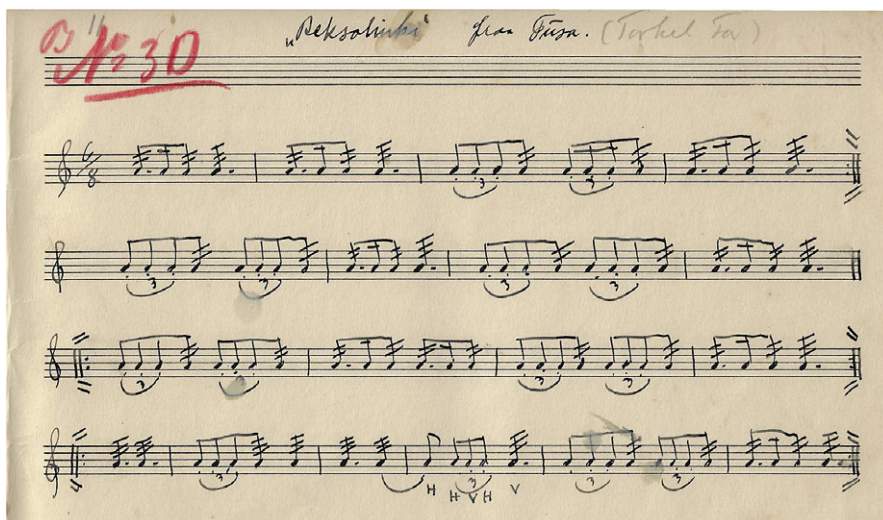 B 11 „Reksolinki“ fraa Fusa. (Torkel Fox)
No 30
6/8
3 3
3 3 3 3
3 3 3 3
3 3 3 3
H H V H V